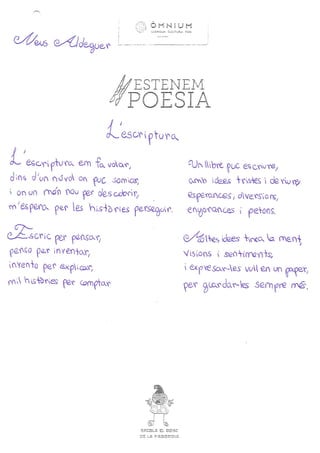 Neus Aldeguer
ÒMNIUM
ESTENEM
POESIA
L'escriptura
L'escriptura em fa volar,
dins d'un núvol on puc somiar,
i on un món nou per descobrir,
m'espera per les històries perseguir.
Escric per pensar,
penso per inventar,
invento per explicar,
mil històries per comptar
Un llibre puc escriure,
amb idees tristes i de riure
esperances, diversions,
enyorances i petons.
Moltes idees tinc a la ment,
visions i sentiments,
i expresar-les vull en un paper,
per guardar-les sempre més.
ESCOLA EL BOSC
DE LA PABORDIA